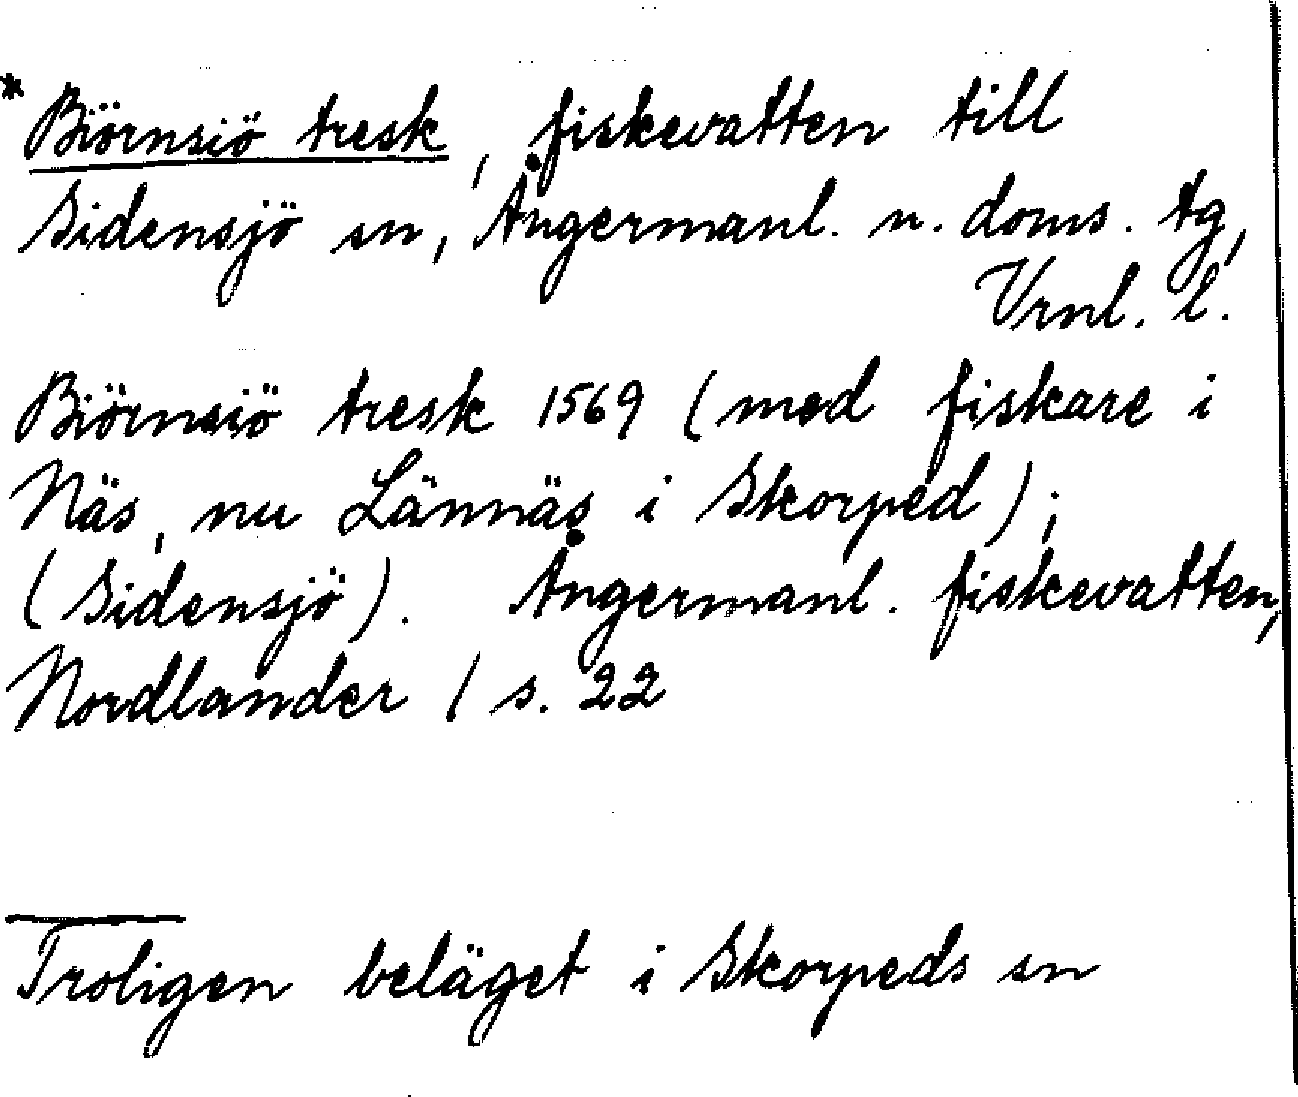 * Biörnsiö tresk, fiskevatten till
Sidensjö sn, Ångermanl. n. doms. tg,
Vrnl. l.
Biörnsiö tresk 1569 (med fiskare i
Näs, nu Lännäs i Skorped);
(Sidensjö). Ångermanl. fiskevatten,
Nordlander / s. 22
Troligen beläget i Skorpeds sn